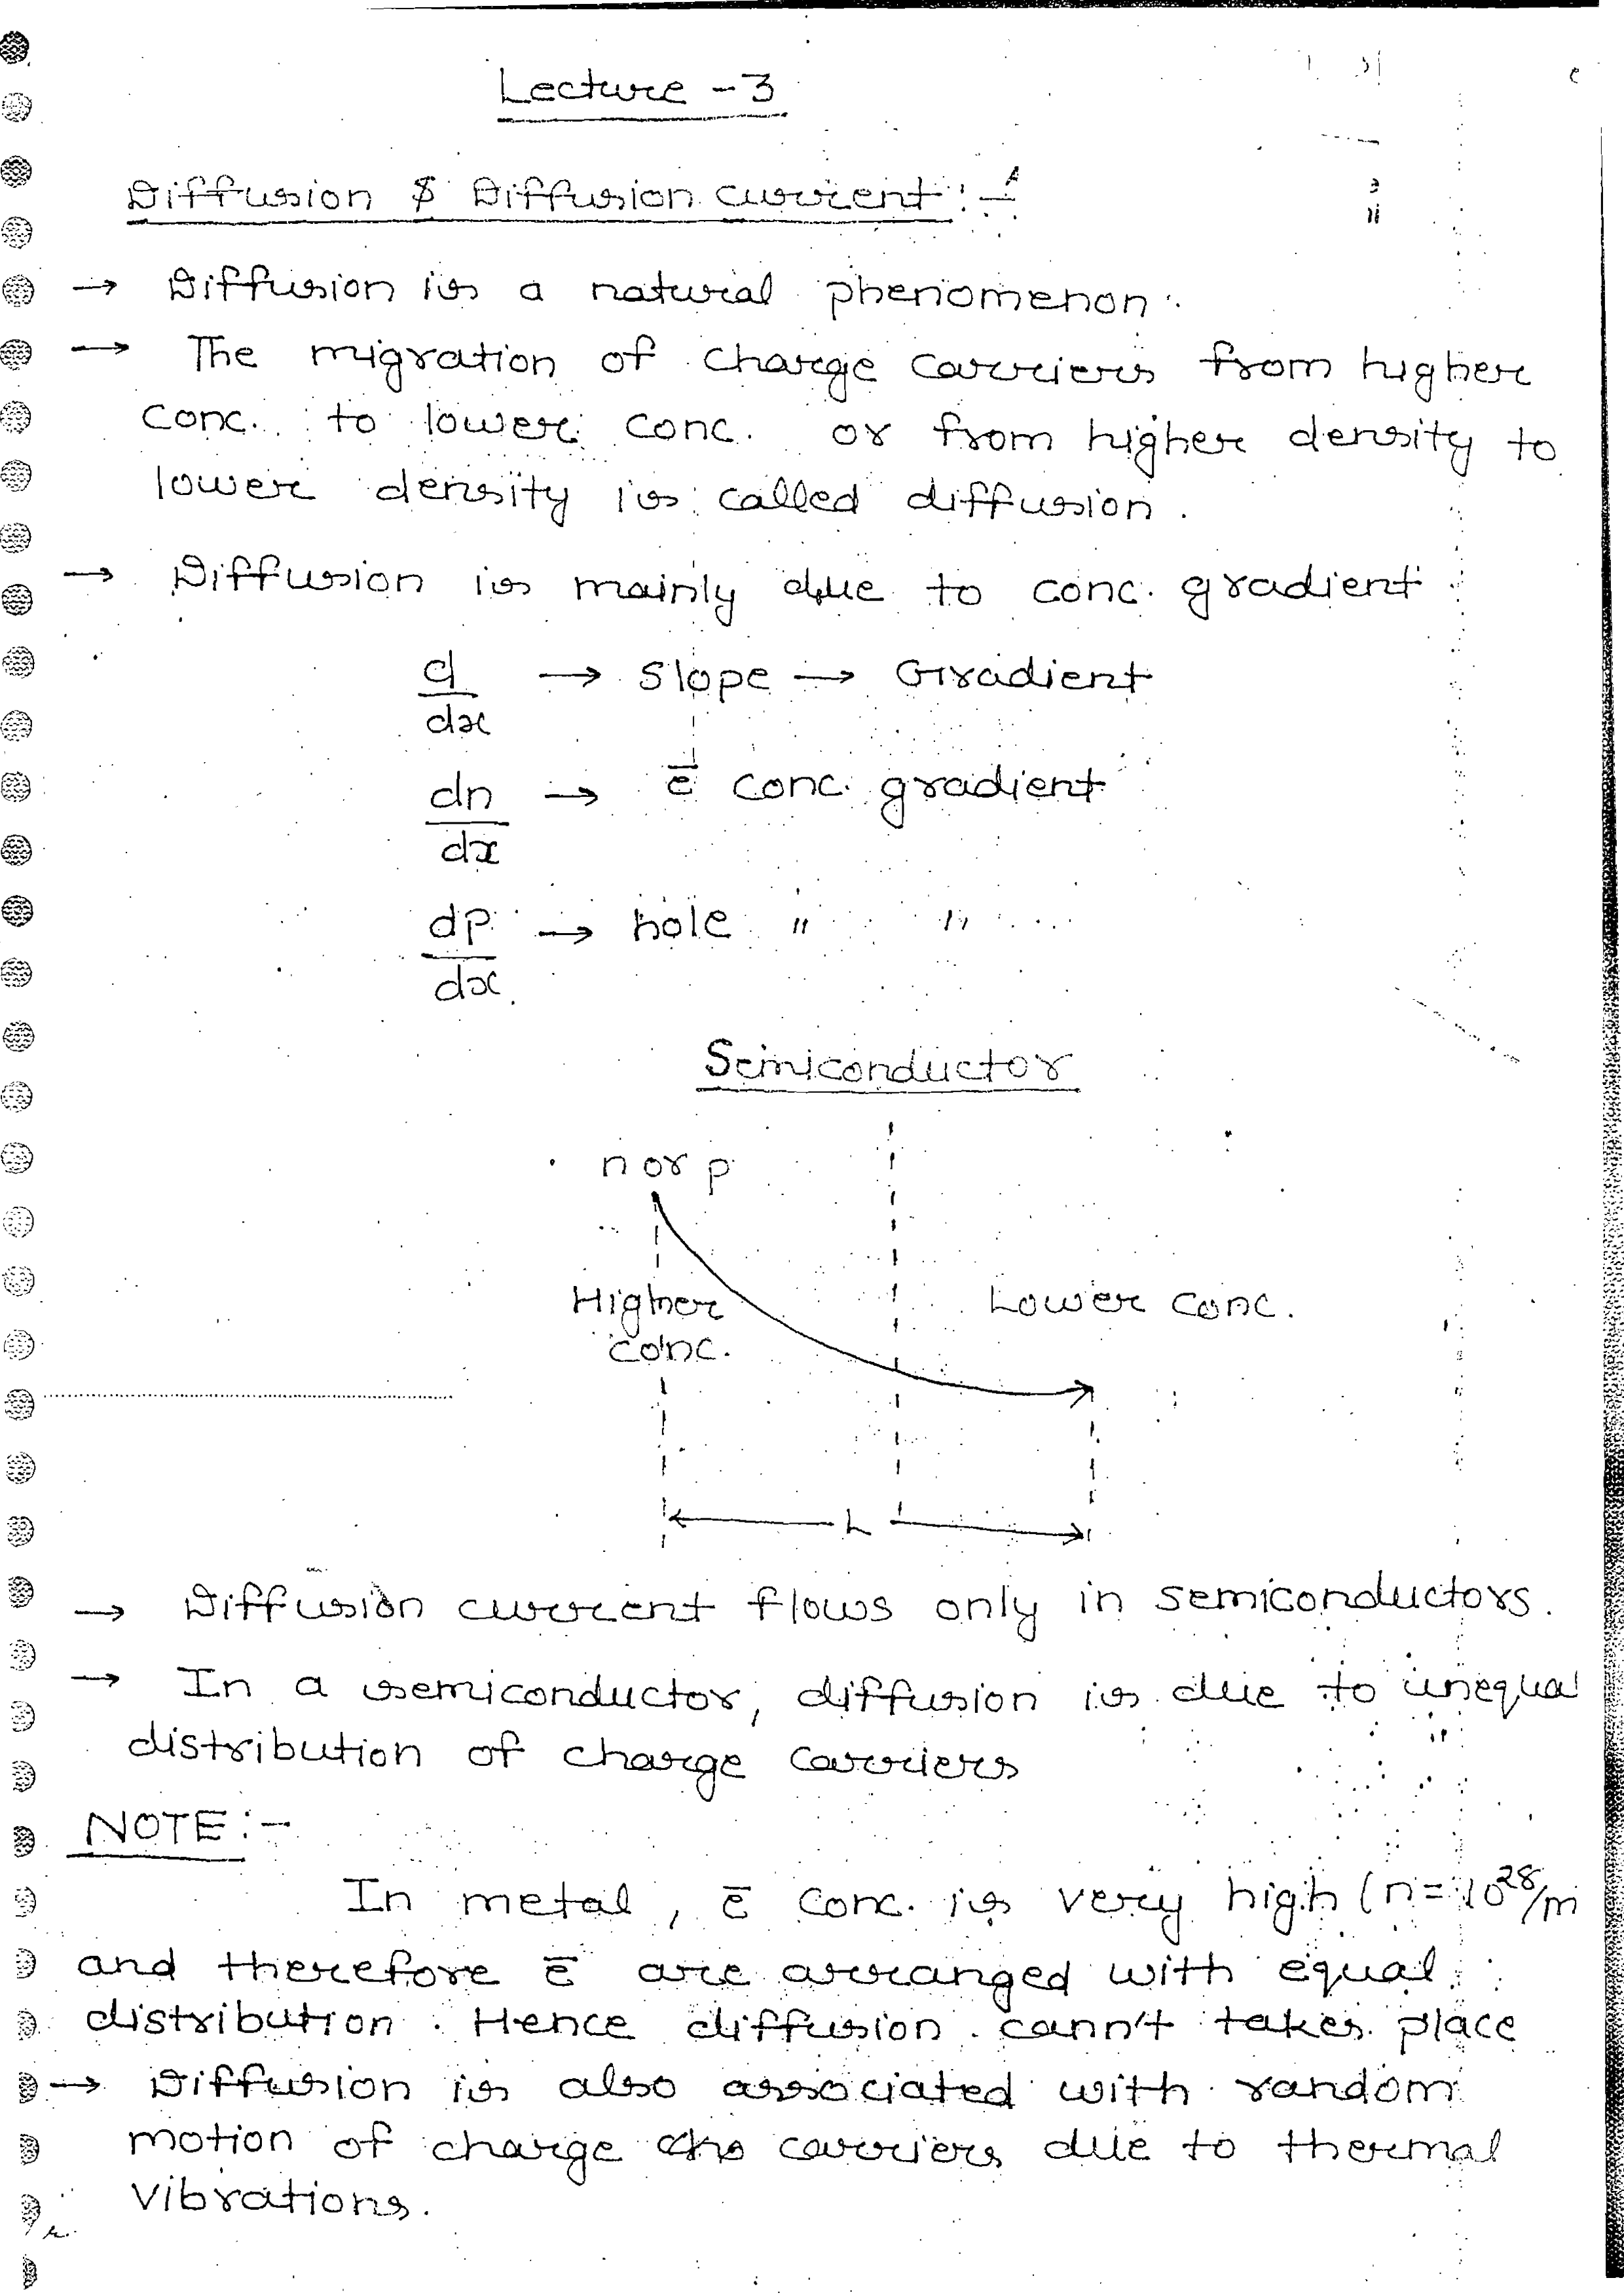 Lecture - 3
Diffusion & Diffusion current :-
→ Diffusion is a natural phenomenon.
→ The migration of charge carriers from higher
conc. to lower conc. or from higher density to
lower density is called diffusion.
→ Diffusion is mainly due to conc. gradient
d/dx → slope → Gradient
dn/dx → ē conc. gradient
dp/dx → hole " "
Semiconductor
n or p
Higher
conc.
Lower conc.
L
→ Diffusion current flows only in semiconductors.
→ In a semiconductor, diffusion is due to unequal
distribution of charge carriers
NOTE :-
In metal, ē conc. is very high (n = 10²⁸/m
and therefore ē are arranged with equal
distribution. Hence diffusion cann't takes place
→ Diffusion is also associated with random
motion of charge carriers due to thermal
vibrations.